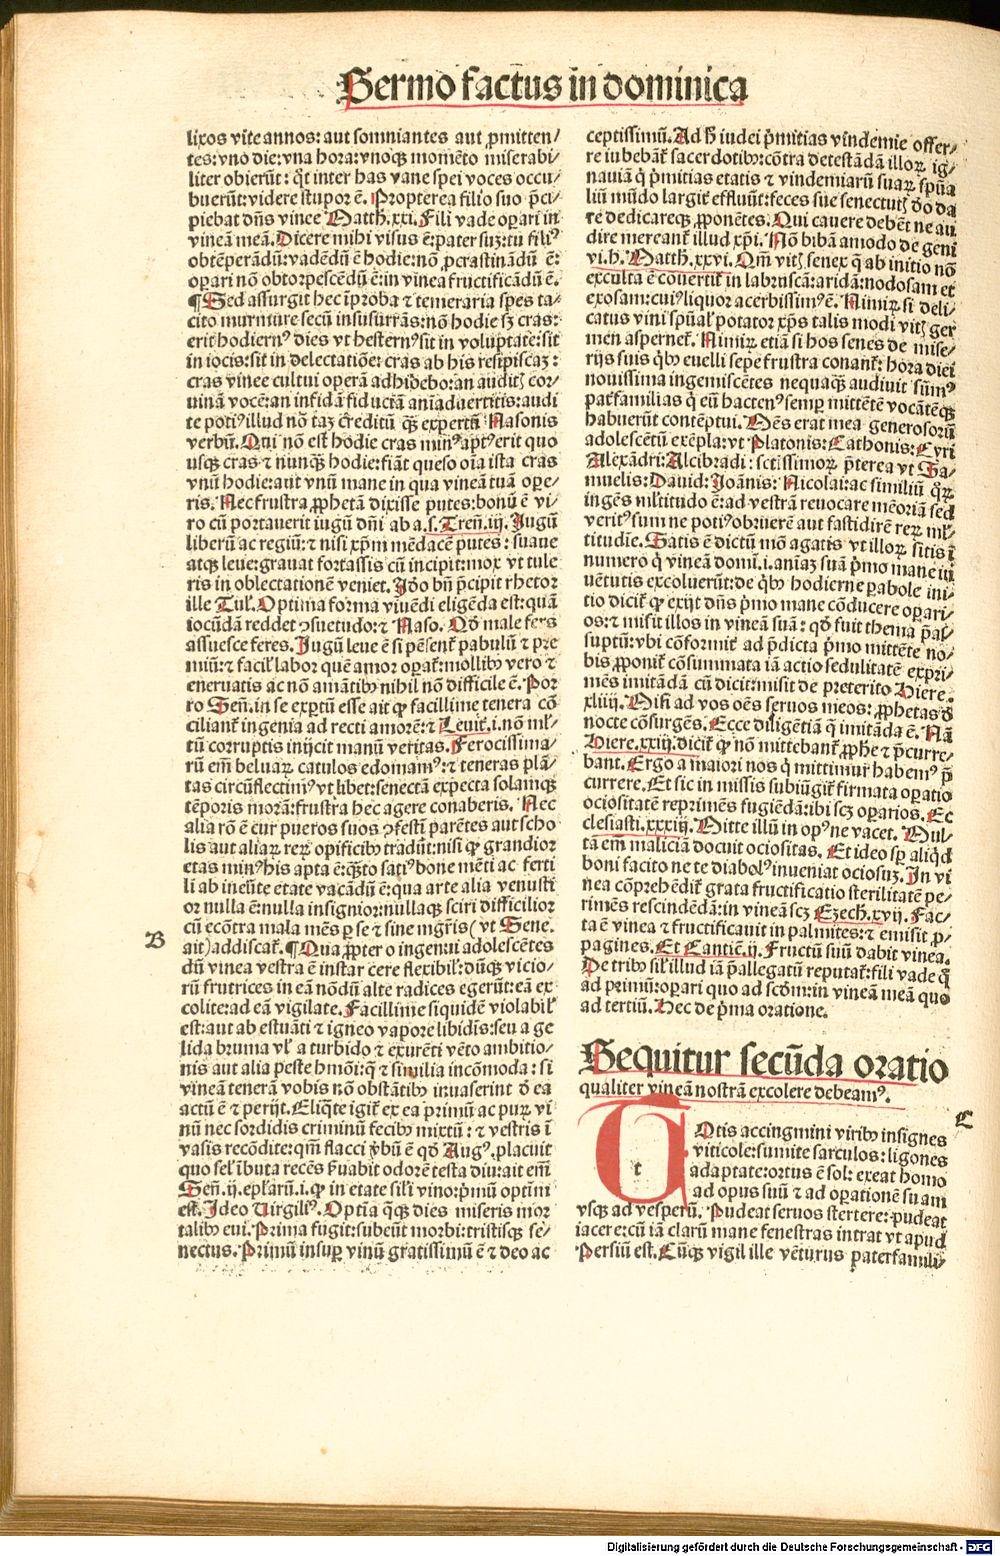 Sermo factus in dominica
lixos vite annos: aut somniantes aut ꝓmitten/
tes: vno die: vna hora: vnoqꝫ momēto miserabi/
liter obierūt: q̄t inter has vane spei voces occu/
buerūt: videre stupor ē. Propterea filio suo p̄ci/
piebat dn̄s vinee Matth̄.xxi. Fili vade oꝑari in
vineā meā. Dicere mihi visus ē: pater suꝫ: tu filiꝰ
obtēperādū: vadēdū ē hodie: nō ꝓcrastinādū ē:
oꝑari nō obtorpescēdū ē: in vinea fructificādū ē.
¶ Sed assurgit hec īproba ⁊ temeraria spes ta/
cito murmure secū insusurrās: nō hodie sꝫ cras:
erit hodiernꝰ dies vt hesternꝰ sit in voluptate: sit
in iocis: sit in delectatiōe: cras ab his resipiscaꝫ:
cras vinee cultui operā adhibebo: an auditꝭ cor/
uinā vocē: an infidā fiduciā aīaduertitis: audi
te potiꝰ illud nō taꝫ creditū qꝫ expertū Nasonis
verbū. Qui nō est hodie cras minꝰ aptꝰ erit quo
usqꝫ cras ⁊ nunqꝫ hodie: fiāt queso oīa ista cras
vnū hodie: aut vnū mane in qua vineā tuā oꝑe/
ris. Nec frustra ꝓphetā dixisse putes: bonū ē vi/
ro cū portauerit iugū dn̄i ab a.s. Tren̄.iij. Jugū
liberū ac regiū: ⁊ nisi xp̄m mēdacē putes: suaue
atqꝫ leue: grauat fortassis cū incipit: mox vt tule
ris in oblectationē veniet. Jdo bn̄ p̄cipit rhetor
ille Tul̄. Optima forma viuēdi eligēda est: quā
iocūdā reddet ꝯsuetudo: ⁊ Naso. Qd̄ male fers
assuesce feres. Jugū leue ē si pēsent̄ pabulū ⁊ pre
miū: ⁊ facil̄ labor quē amor oꝑat̄: mollibꝰ vero ⁊
eneruatis ac nō amātibꝰ nihil nō difficile ē. Por
ro Sen̄. in se expertū esse ait ꝙ facillime tenera cō
ciliant̄ ingenia ad recti amorē: ⁊ Leuit̄.i. nō ml̄/
tū corruptis inijcit manū veritas. Ferocissima/
rū em̄ beluaꝝ catulos edomamꝰ: ⁊ teneras plā/
tas circūflectimꝰ vt libet: senectā expecta solamqꝫ
tēporis morā: frustra hec agere conaberis. Nec
alia rō ē cur pueros suos ꝯfestī parētes aut scho
lis aut aliaꝝ reꝝ opificibꝰ tradūt: nisi ꝙ grandior
etas minꝰ his apta ē: q̄sto satiꝰ bone mēti ac ferti
li ab ineūte etate vacādū ē: qua arte alia venusti
or nulla ē: nulla insignior: nullaqꝫ sciri difficilior
cū ecōtra mala mēs ꝑ se ⁊ sine mgr̄is (vt Sene.
B
ait) addiscat̄. ¶ Qua ꝓpter o ingenui adolescētes
dū vinea vestra ē instar cere flexibil̄: dūqꝫ vicio/
rū frutrices in eā nōdū alte radices egerūt: eā ex
colite: ad eā vigilate. Facillime siquidē violabil̄
est: aut ab estuāti ⁊ igneo vapore libidīs: seu a ge
lida bruma vl̄ a turbido ⁊ exurēti vēto ambitio/
nis aut alia peste hmōi: q̄ ⁊ similia incōmoda: si
vineā tenerā vobis nō obstātibꝰ inuaserint ꝺ̄ ea
actū ē ⁊ perijt. Eliq̄te igit̄ ex ea primū ac puꝝ vi
nū nec sordidis criminū fecibꝰ mixtū: ⁊ vestris ī
vasis recōdite: qm̄ flacci v̄bū ē qd̄ Augꝰ. placuit
quo sel̄ ībuta recēs s̄uabit odorē testa diu: ait em̄
Sen̄.ij. epl̄arū.i. ꝙ in etate sil̄i vino: p̄mū optim̄
est. Jdeo Virgiliꝰ. Optīa q̄qꝫ dies miseris mor
talibꝰ eui. Prima fugit: subeūt morbi: tristisqꝫ se/
nectus. Primū insuꝑ vinū gratissimū ē ⁊ deo ac
ceptissimū. Ad h̄ iudei p̄mitias vindemie offer/
re iubebāt̄ sacerdotibꝰ: cōtra detestādā illoꝝ ig/
nauiā q̄ p̄mitias etatis ⁊ vindemiarū suaꝝ sp̄ua
liū mūdo largit̄ effluūt: feces sue senectutꝭ ꝺ̄o da
re dedicareqꝫ ꝓponētes. Qui cauere debēt ne au
dire mereant̄ illud xp̄i. Nō bibā amodo de geni
vi.h̄. Matth̄.xxvi. Qm̄ vitꝭ senex q̄ ab initio nō
exculta ē couertit̄ in labruscā: aridā: nodosam et
exosam: cuiꝰ liquor acerbissimꝰ ē. Nimiꝝ si deli/
catus vini sp̄ual̄ potator xp̄s talis modi vitꝭ ger
men aspernet̄. Nimiꝝ etiā si hos senes de mise/
rijs suis q̄bꝰ euelli sepe frustra conant̄: hora diei
nouissima ingemiscētes nequaqꝫ audiuit sūmꝰ
pat̄familias q̄ eū hactenꝰ semꝑ mittētē vocātēqꝫ
habuerūt contēptui. Dēs erat mea generosorū
adolescētū exēpla: vt Platonis: Cathonis: Cyri
Alexādri: Alcibradi: sctissimoꝝ p̄terea vt Sa/
muelis: Dauid: Joānis: Nicolai: ac similiū qꝝ
ingēs ml̄titudo ē: ad vestrā reuocare mēoriā sed
veritꝰ sum ne potiꝰ obruerē aut fastidirē reꝝ ml̄/
titudīe. Satis ē dictū mō agatis vt illoꝝ sitis ī
numero q̄ vineā domī.i. aniaꝫ suā p̄mo mane iu
uētutis excoluerūt: de q̄bꝰ hodierne ꝑabole ini/
tio dicit̄ ꝙ exijt dn̄s p̄mo mane cōducere oꝑari/
os: ⁊ misit illos in vineā suā: qd̄ fuit thema p̄as/
suptū: vbi cōformit̄ ad p̄dicta p̄mo mittēte no/
bis ꝓponit̄ cōsummata iā actio sedulitatē expri/
mēs imitādā cū dicit: misit de preterito Hiere.
xliiij. Misi ad vos oēs seruos meos: ꝓphetas ꝺ̄
nocte cōsurgēs. Ecce diligētiā q̄ imitāda ē. Nā
Hiere.xxiij. dicit̄ ꝙ nō mittebant̄ ꝓphe ⁊ p̄curre/
bant. Ergo a maiori nos q̄ mittimur habemꝰ p̄
currere. Et sic in missis subiūgit̄ firmata oꝑatio
ociositatē reprimēs fugiēdā: ibi scꝫ oꝑarios. Ec
clesiasti.xxxiij. Mitte illū in opꝰ ne vacet. Mul/
tā em̄ maliciā docuit ociositas. Et ideo sꝑ aliq̄d
boni facito ne te diabolꝰ inueniat ociosuꝫ. Jn vi
nea cōprehēdit̄ grata fructificatio sterilitatē pe/
rimēs rescindēdā: in vineā scꝫ Ezech̄.xvij. Fac/
ta ē vinea ⁊ fructificauit in palmites: ⁊ emisit ꝓ/
pagines. Et Cantic̄.ij. Fructū suū dabit vinea.
De tribꝰ sil̄ illud iā p̄allegatū reputat̄: fili vade q̄
ad primū: oꝑari quo ad scd̄m: in vineā meā quo
ad tertiū. Hec de p̄ma oratione.
Sequitur secūda oratio
qualiter vineā nostrā excolere debeamꝰ.
C
t
Otis accingmini viribꝰ insignes
viticole: sumite sarculos: ligones
adaptate: ortus ē sol: exeat homo
ad opus suū ⁊ ad oꝑationē suam
vsqꝫ ad vesperū. Pudeat seruos stertere: pudeat
iacere: cū iā clarū mane fenestras intrat vt apud
Persiū est. Cūqꝫ vigil ille vēturus paterfamili/
Digitalisierung gefördert durch die Deutsche Forschungsgemeinschaft - DFG